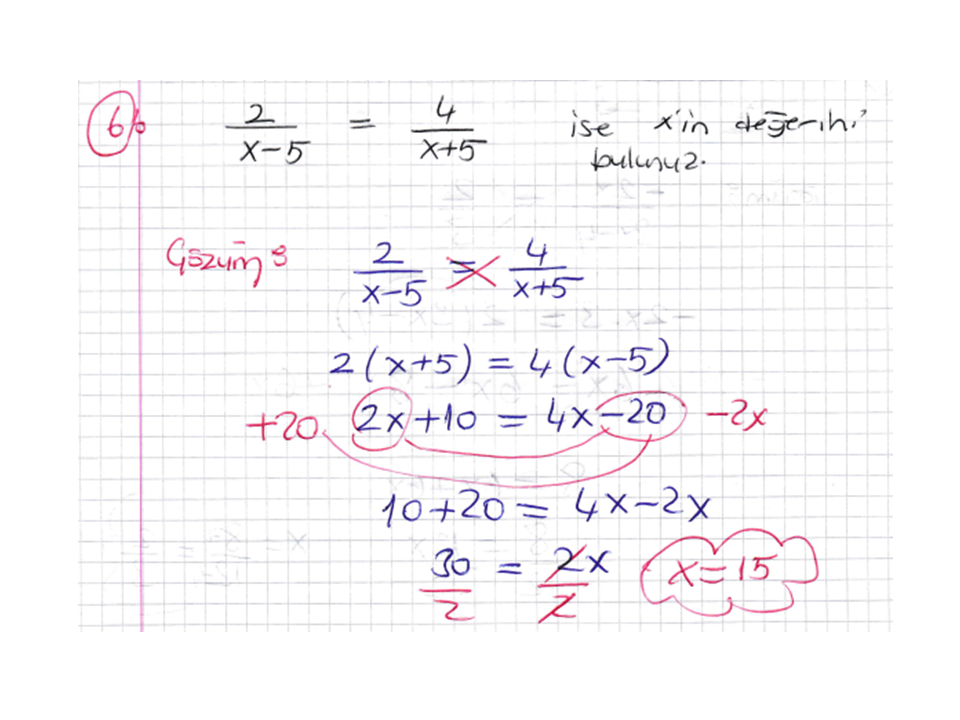 6) 2/(x-5) = 4/(x+5) ise x'in değerini
bulunuz.
Çözüm: 2/(x-5) = 4/(x+5)
2(x+5) = 4(x-5)
+20 2x+10 = 4x-20 -2x
10+20 = 4x-2x
30/2 = 2x/2 x=15